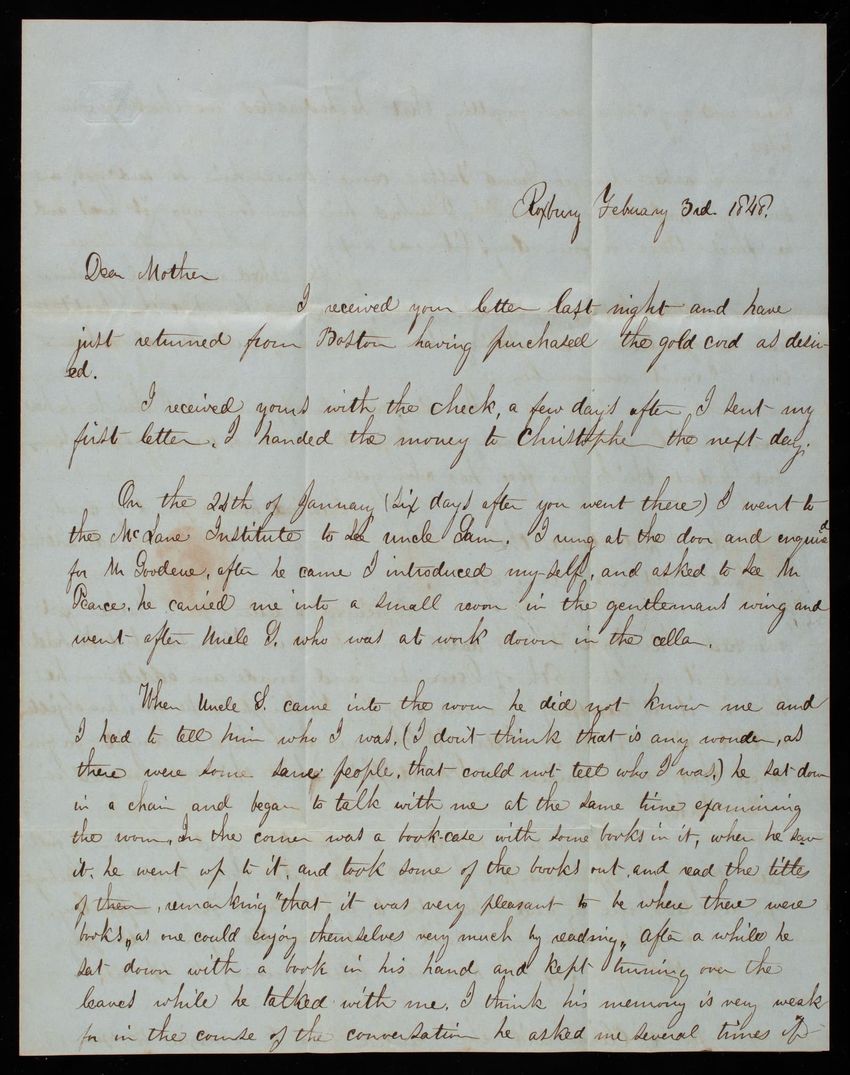 Roxbury Febuary 3rd. 1848.
Dear Mother
I received your letter last night and have
just returned from Boston having purchased the gold cord as desir-
ed.
I received yours with the check, a few days after I sent my
first letter. I handed the money to Christopher the next day.
On the 24th of January (six days after you went there) I went to
the McLane Institute to see uncle Sam. I rung at the door and enquired
for Mr Goodene, after he came I introduced my-self, and asked to see Mr
Pearce. he carried me into a small room in the gentlemans wing and
went after Uncle S. who was at work down in the cellar.
When Uncle S. came into the room he did not know me and
I had to tell him who I was. (I don't think that is any wonder, as
there were some sane people, that could not tell who I was.) he sat down
in a chair and began to talk with me at the same time examining
the room. In the corner was a book-case with some books in it, when he saw
it, he went up to it, and took some of the books out, and read the titles
of them, remarking "that it was very pleasant to be where there were
books, as one could enjoy themselves very much by reading" after a while he
sat down with a book in his hand and kept turning over the
leaves while he talked with me. I think his memory is very weak
for in the course of the conversation he asked me several times if